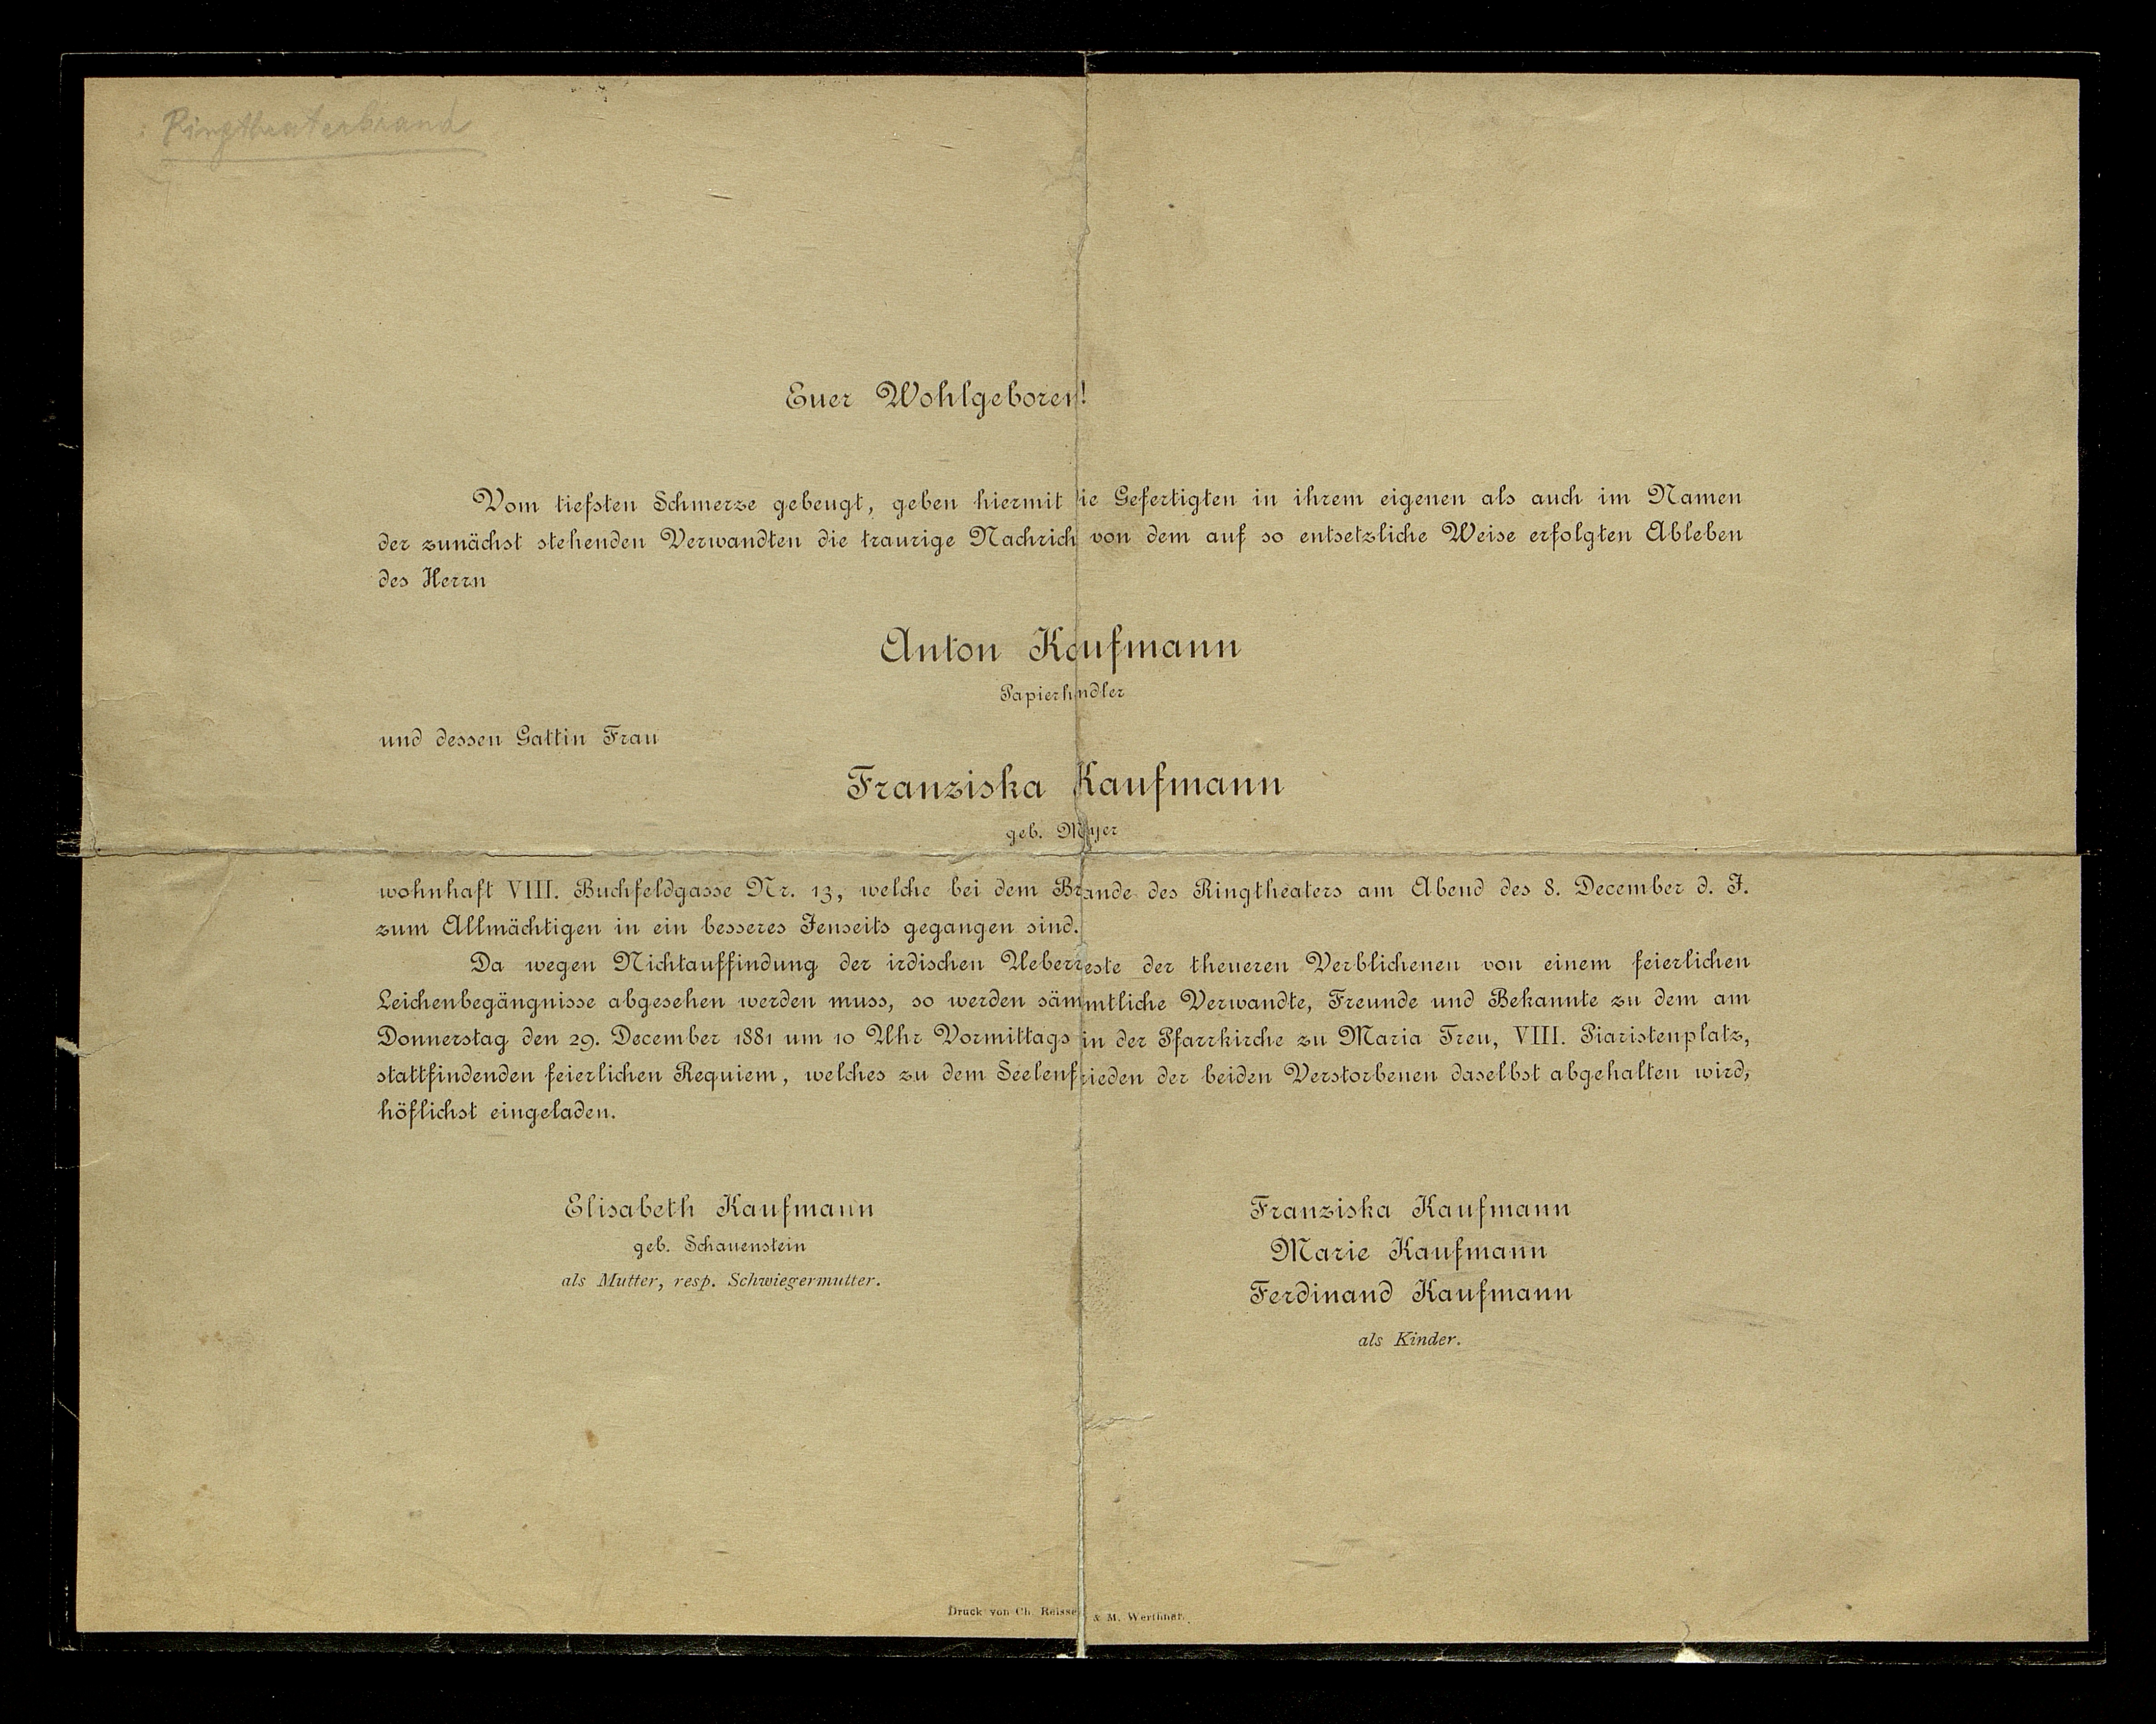 Ringtheaterbrand
Euer Wohlgeboren!
Vom tiefsten Schmerze gebeugt, geben hiermit die Gefertigten in ihrem eigenen als auch im Namen
der zunächst stehenden Verwandten die traurige Nachricht von dem auf so entsetzliche Weise erfolgten Ableben
des Herrn
Anton Kaufmann
Papierhändler
und dessen Gattin Frau
Franziska Kaufmann
geb.
wohnhaft VIII. Buchfeldgasse Nr. 13, welche bei dem Brande des Ringtheaters am Abend des 8. December d. J.
zum Allmächtigen in ein besseres Jenseits gegangen sind.
Da wegen Nichtauffindung der irdischen Ueberreste der theueren Verblichenen von einem feierlichen
Leichenbegängnisse abgesehen werden muss, so werden sämmtliche Verwandte, Freunde und Bekannte zu dem am
Donnerstag den 29. December 1881 um 10 Uhr Vormittags in der Pfarrkirche zu Maria Treu, VIII. Piaristenplatz,
stattfindenden feierlichen Requiem, welches zu dem Seelenfrieden der beiden Verstorbenen daselbst abgehalten wird,
höflichst eingeladen.
Elisabeth Kaufmann
geb. Schauenstein
als Mutter, resp. Schwiegermutter.
Franziska Kaufmann
Marie Kaufmann
Ferdinand Kaufmann
als Kinder.
Druck von Ch. Reisser & M. Werthner.